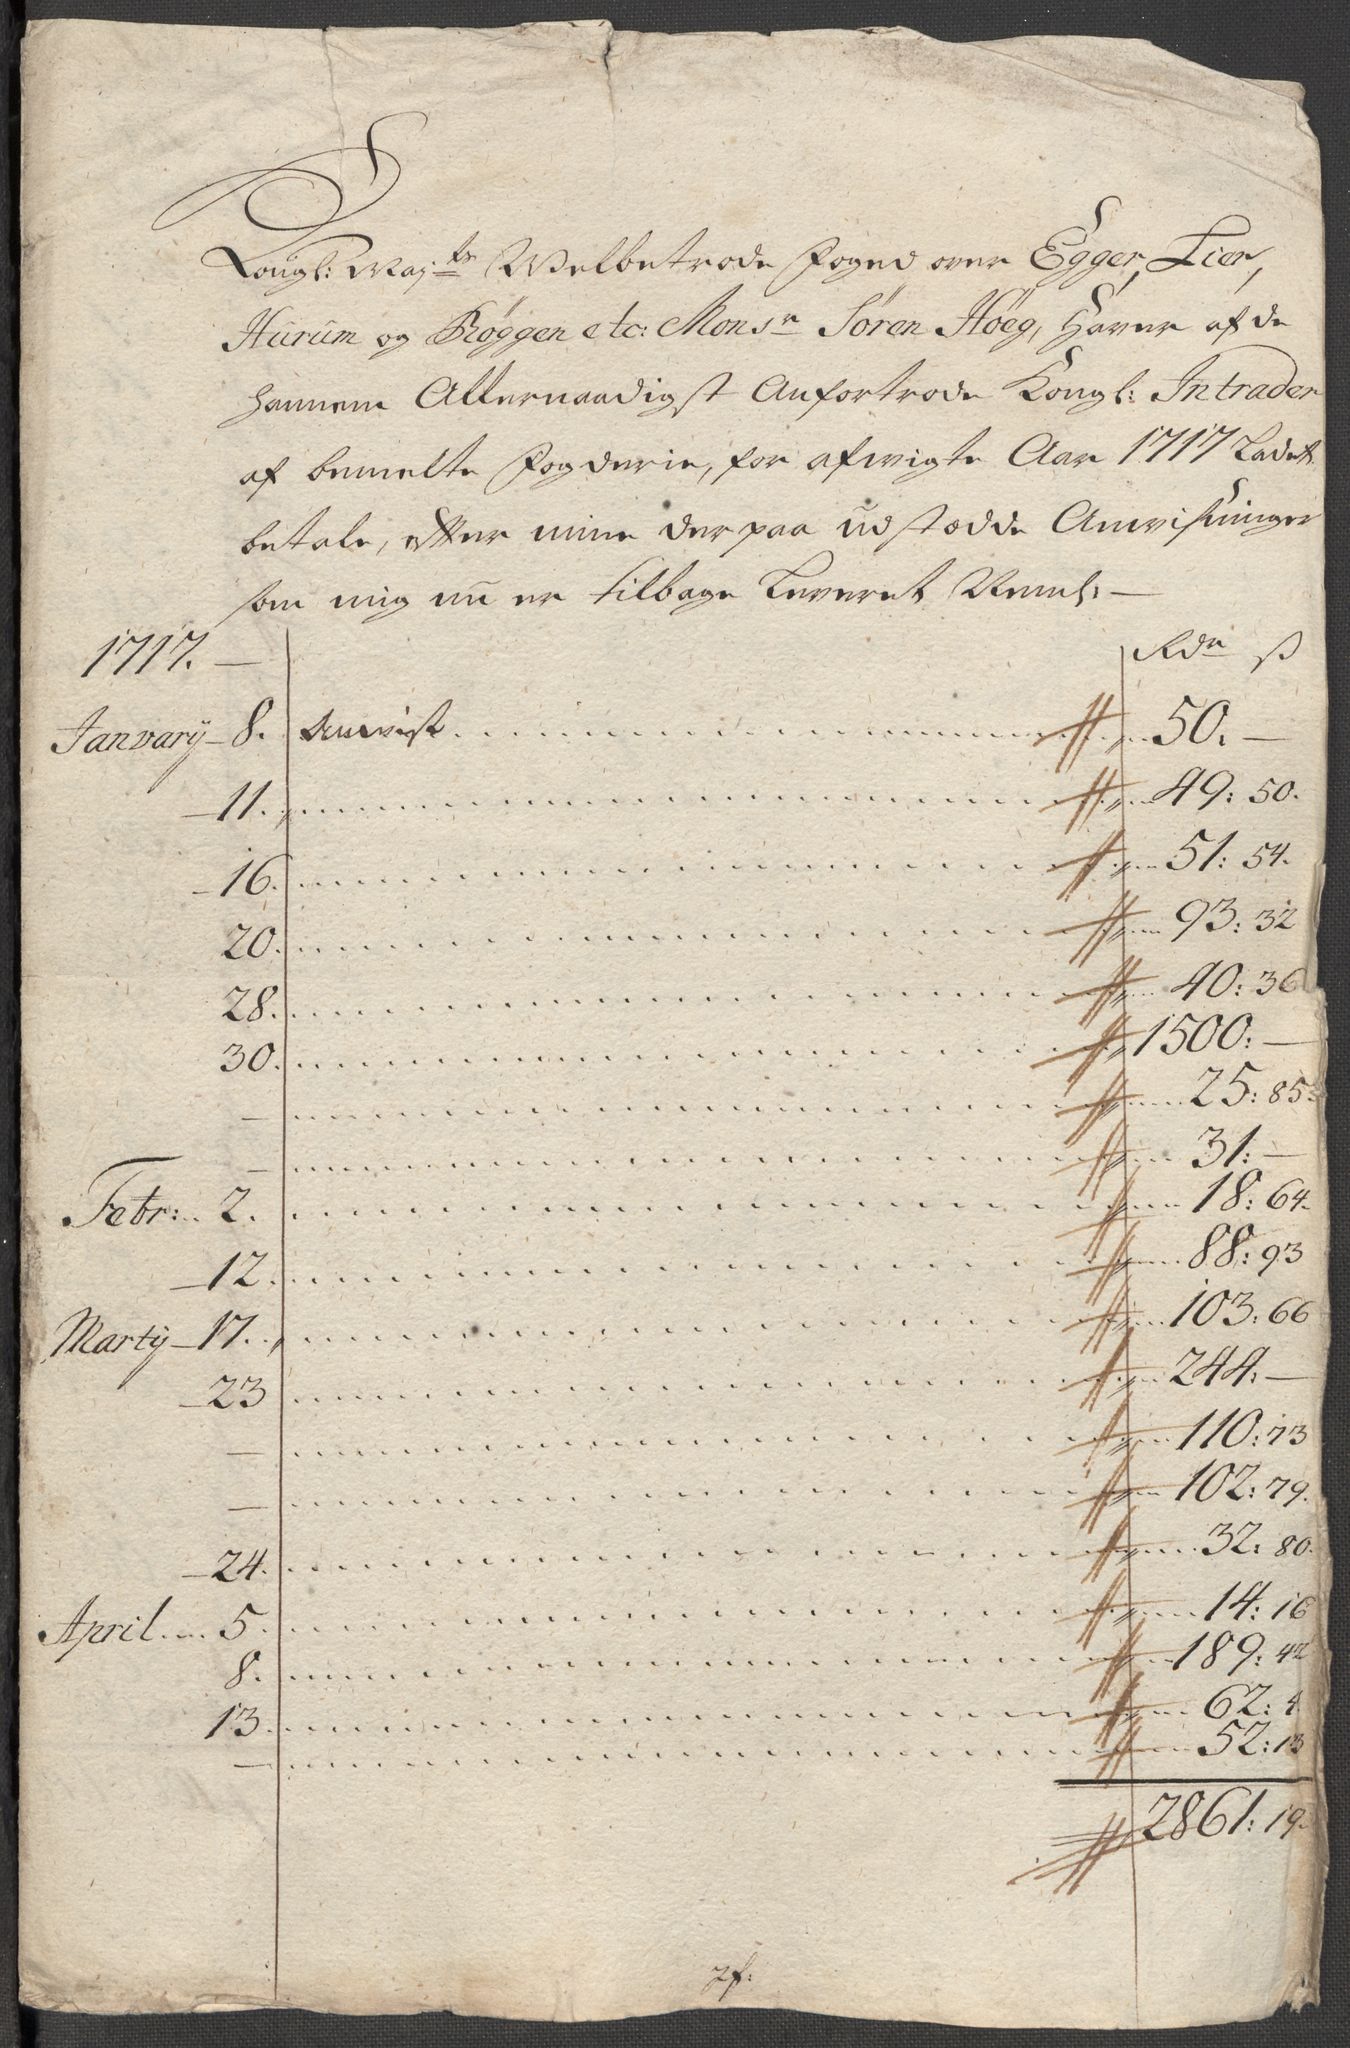 Kongl: Maj:ts Welbetrode Foged over Egger, Lier,
Hurum og Røggen etc: Monsr Søren Høeg, Haver af de
hannem Allernaadigst Anfortrode Kongl: Intrader
af bemelte Fogderie, for afwigte Aar 1717 Ladet
betale, efter mine derpaa udstædde Anwisninger
som mig nu er tilbage Leveret Neml: —
1717. — Rdr ß
Janvary – 8. Anvist 50. —
– 11. 49: 50.
– 16. 51: 54.
20. 93: 32
28. 40: 36
30. 1500: —
— 25: 85
— 31: —
Febr: 2. 18: 64.
– 12. 88: 93
Martÿ – 17. 103: 66
– 23 244: —
— 110: 73
— 102: 79.
– 24. 32: 80.
April 5. 14: 16
8. 189: 42
13. 62: 4
— 52: 13
2861: 19.